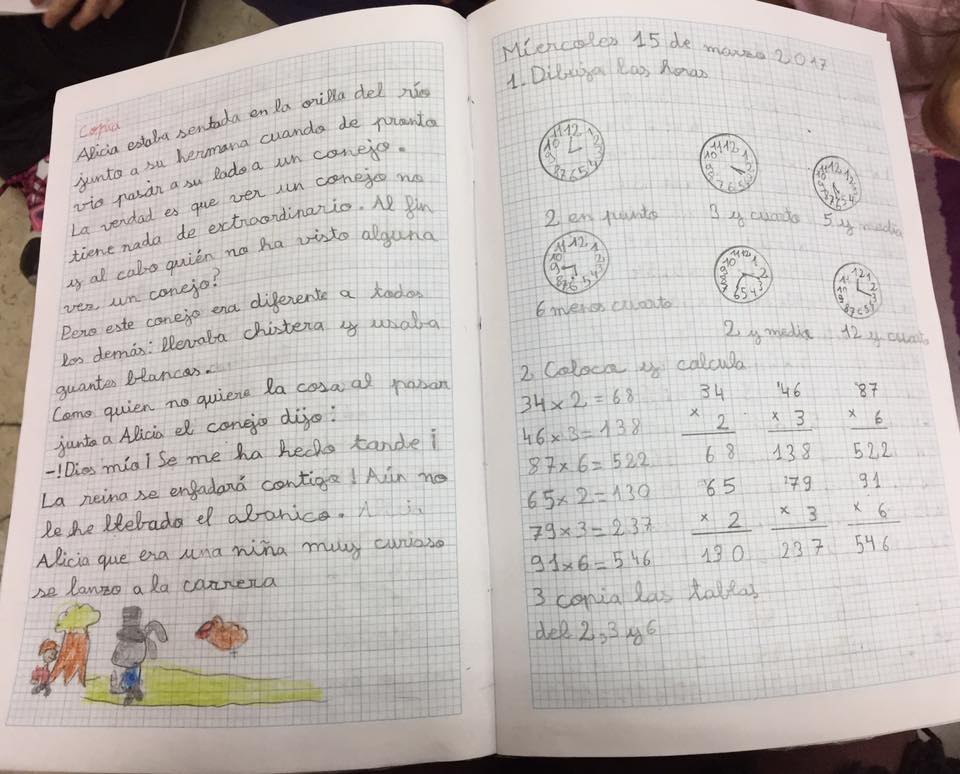 Copia
Alicia estaba sentada en la orilla del río
junto a su hermana cuando de pronto
vio pasar a su lado a un conejo.
La verdad es que ver un conejo no
tiene nada de extraordinario. Al fin
y al cabo quién no ha visto alguna
vez un conejo?
Pero este conejo era diferente a todos
los demás: llevaba chistera y usaba
guantes blancos.
Como quien no quiere la cosa al pasar
junto a Alicia el conejo dijo:
-!Dios mío¡ Se me ha hecho tarde¡
La reina se enfadará contigo! Aún no
le he llebado el abanico.
Alicia que era una niña muy curiosa
se lanzo a la carrera
Miércoles 15 de marzo 2017
1. Dibuja las horas
2 en punto 3 y cuarto 5 y media
6 menos cuarto
2 y media 12 y cuarto
2 Coloca y calcula
34 x 2 = 68 34 46 87
x 2 x 3 x 6
46 x 3 = 138
87 x 6 = 522 68 138 522
65 x 2 = 130 65 79 91
79 x 3 = 237 x 2 x 3 x 6
91 x 6 = 546 130 237 546
3 copia las tablas
del 2, 3 y 6